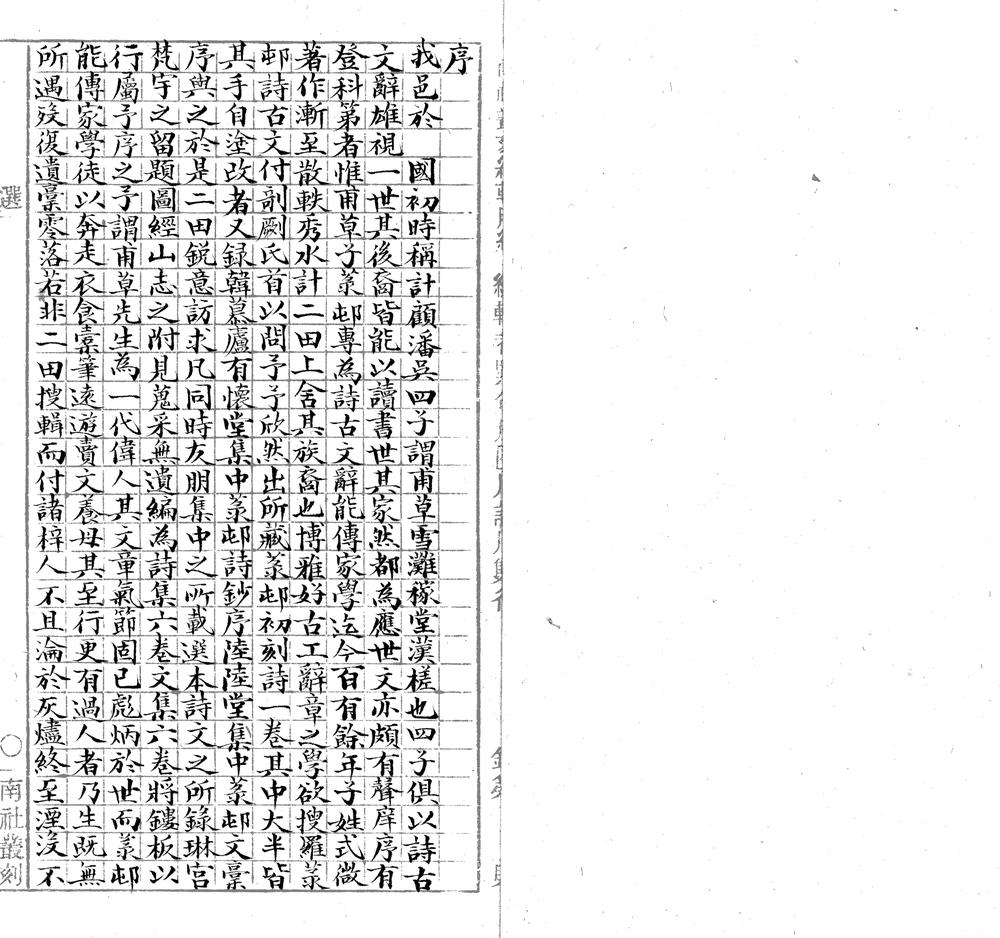 序
我邑於　國初時稱計顧潘吳四子謂甫草雪灘稼堂漢槎也四子俱以詩古
文辭雄視一世其後裔皆能以讀書世其家然都為應世文亦頗有聲庠序有
登科第者惟甫草子菉邨專為詩古文辭能傳家學迄今百有餘年子姓式微
著作漸至散軼秀水計二田上舍其族裔也博雅好古工辭章之學欲搜羅菉
邨詩古文付剞劂氏首以問予予欣然出所藏菉邨初刻詩一卷其中大半皆
其手自塗改者又錄韓慕廬有懷堂集中菉邨詩鈔序陸陸堂集中菉邨文稾
序與之於是二田銳意訪求凡同時友朋集中之所載選本詩文之所錄琳宮
梵宇之留題圖經山志之附見蒐采無遺編為詩集六卷文集六卷將鏤板以
行屬予序之予謂甫草先生為一代偉人其文章氣節固已彪炳於世而菉邨
能傳家學徒以奔走衣食橐筆遠遊賣文養母其至行更有過人者乃生既無
所遇歿復遺稾零落若非二田搜輯而付諸梓人不且淪於灰燼終至湮沒不
選
南社叢刻